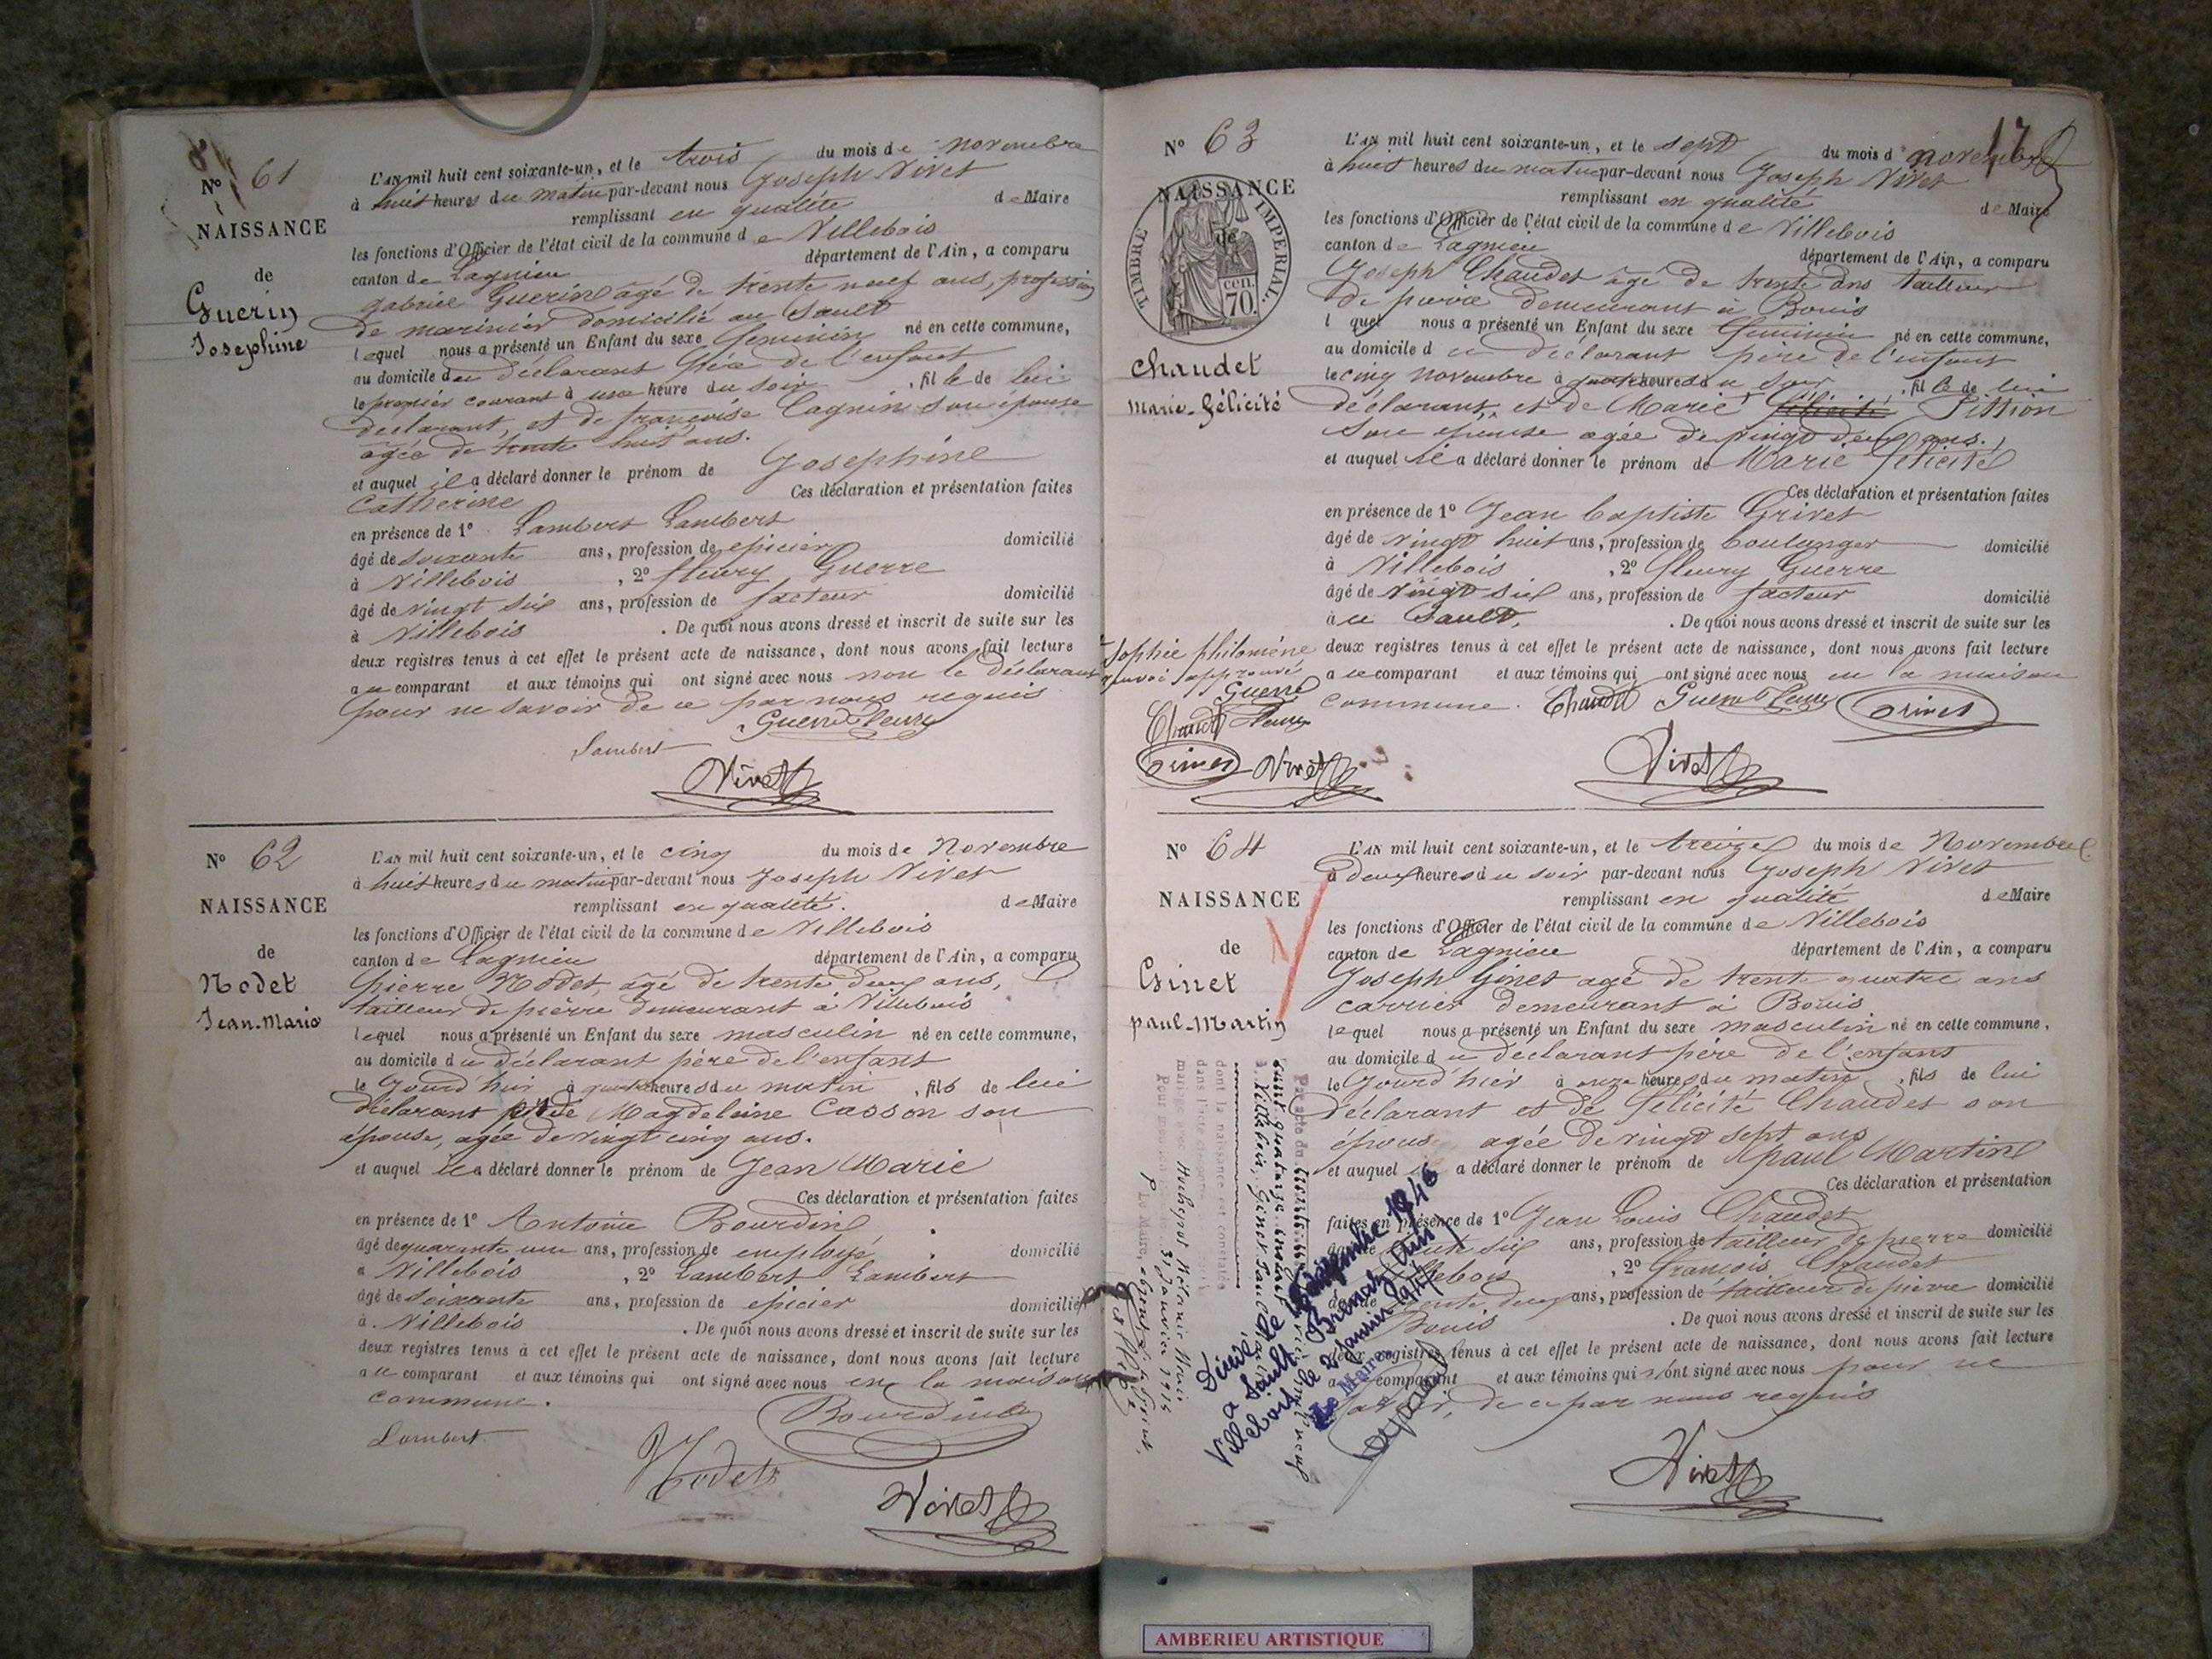 N° 61
NAISSANCE
de
Guerin
Josephine
L'AN mil huit cent soixante-un, et le trois du mois de novembre
à huit heures du matin par-devant nous Joseph Vivet
remplissant en qualité de Maire
les fonctions d'Officier de l'état civil de la commune de Villebois
canton de Lagnieu département de l'Ain, a comparu
gabriel Guerin agé de trente neuf ans, profession
de marinier domicilié au Sault
lequel nous a présenté un Enfant du sexe feminin né en cette commune,
au domicile du déclarant père de l'enfant
le premier courant à une heure du soir, fille de lui
déclarant, et de françoise Cagnin son épouse
agée de trente huit ans.
et auquel il a déclaré donner le prénom de Josephine
Catherine Ces déclaration et présentation faites
en présence de 1° Lambert Lambert
âgé de soixante ans, profession de epicier domicilié
à Villebois, 2° fleury Guerre
âgé de vingt six ans, profession de facteur domicilié
à Villebois. De quoi nous avons dressé et inscrit de suite sur les
deux registres tenus à cet effet le présent acte de naissance, dont nous avons fait lecture
au comparant et aux témoins qui ont signé avec nous non le déclarant
pour ne savoir de ce par nous requis
Guerre fleury
Lambert
Vivet
N° 62
NAISSANCE
de
Nodet
Jean-Marie
L'AN mil huit cent soixante-un, et le cinq du mois de Novembre
à huit heures du matin par-devant nous Joseph Vivet
remplissant en qualité. de Maire
les fonctions d'Officier de l'état civil de la commune de Villebois
canton de Lagnieu département de l'Ain, a comparu
pierre Nodet, agé de trente deux ans,
tailleur de pierre demeurant à Villebois
lequel nous a présenté un Enfant du sexe masculin né en cette commune,
au domicile du déclarant père de l'enfant
le Jourd'hui à quatre heures du matin, fils de lui
déclarant et de Magdeleine Casson son
épouse, agée de vingt cinq ans.
et auquel il a déclaré donner le prénom de Jean Marie
Ces déclaration et présentation faites
en présence de 1° Antoine Bourdin
âgé de quarante un ans, profession de employé domicilié
à Villebois, 2° Lambert Lambert
âgé de soixante ans, profession de epicier domicilié
à Villebois. De quoi nous avons dressé et inscrit de suite sur les
deux registres tenus à cet effet le présent acte de naissance, dont nous avons fait lecture
au comparant et aux témoins qui ont signé avec nous en la maison
commune.
Bourdin
Lambert
Nodet
Vivet
17
N° 63
NAISSANCE
de
TIMBRE IMPERIAL.
cen.
70.
Chaudet
Marie-Félicité
L'AN mil huit cent soixante-un, et le sept du mois d novembre
à huit heures du matin par-devant nous Joseph Vivet
remplissant en qualité de Maire
les fonctions d'Officier de l'état civil de la commune de Villebois
canton de Lagnieu département de l'Ain, a comparu
Joseph Chaudet agé de trente ans tailleur
de pierre demeurant à Bouis
l quel nous a présenté un Enfant du sexe feminin né en cette commune,
au domicile du déclarant père de l'enfant
le cinq novembre à quatre heures du soir, fille de lui
déclarant, et de Marie félicité Pittion
son épouse agée de vingt deux ans.
et auquel il a déclaré donner le prénom de Marie félicité
Ces déclaration et présentation faites
en présence de 1° Jean baptiste Grivet
âgé de vingt huit ans, profession de boulanger domicilié
à Villebois, 2° fleury Guerre
âgé de vingt six ans, profession de facteur domicilié
au Sault. De quoi nous avons dressé et inscrit de suite sur les
deux registres tenus à cet effet le présent acte de naissance, dont nous avons fait lecture
au comparant et aux témoins qui ont signé avec nous en la maison
commune. Chaudet Guerre fleury Grivet
Vivet
Sophie philomène
renvoi approuvé
Guerre
Chaudet fleury
Grivet Vivet
N° 64
NAISSANCE
de
Ginet
paul-Martin
L'AN mil huit cent soixante-un, et le treize du mois de Novembre
à deux heures du soir par-devant nous Joseph Vivet
remplissant en qualité de Maire
les fonctions d'Officier de l'état civil de la commune de Villebois
canton de Lagnieu département de l'Ain, a comparu
Joseph Ginet agé de trente quatre ans
carrier demeurant à Bouis
lequel nous a présenté un Enfant du sexe masculin né en cette commune,
au domicile du déclarant père de l'enfant
le Jourd'hier à onze heures du matin, fils de lui
déclarant et de félicité Chaudet son
épouse agée de vingt sept ans
et auquel il a déclaré donner le prénom de paul Martin
Ces déclaration et présentation
faites en présence de 1° Jean Louis Chaudet
âgé de trente six ans, profession de tailleur de pierre domicilié
Villebois, 2° françois Chaudet
âgé de trente deux ans, profession de tailleur de pierre domicilié
Bouis. De quoi nous avons dressé et inscrit de suite sur les
deux registres tenus à cet effet le présent acte de naissance, dont nous avons fait lecture
au comparant et aux témoins qui n'ont signé avec nous pour ne
savoir, de ce par nous requis
Vivet
Par acte du
à Villebois, Ginet Paul
dont la naissance est constatée
dans l'acte ci-contre a contracté
mariage avec Hochepot Mélanie Marie
Pour mention 31 Janvier 1915
P Le Maire,
Décédé
à Sault Brenaz (Ain)
le Décembre 1946
Villebois le 2 Janvier 1947
Le Maire
AMBERIEU ARTISTIQUE